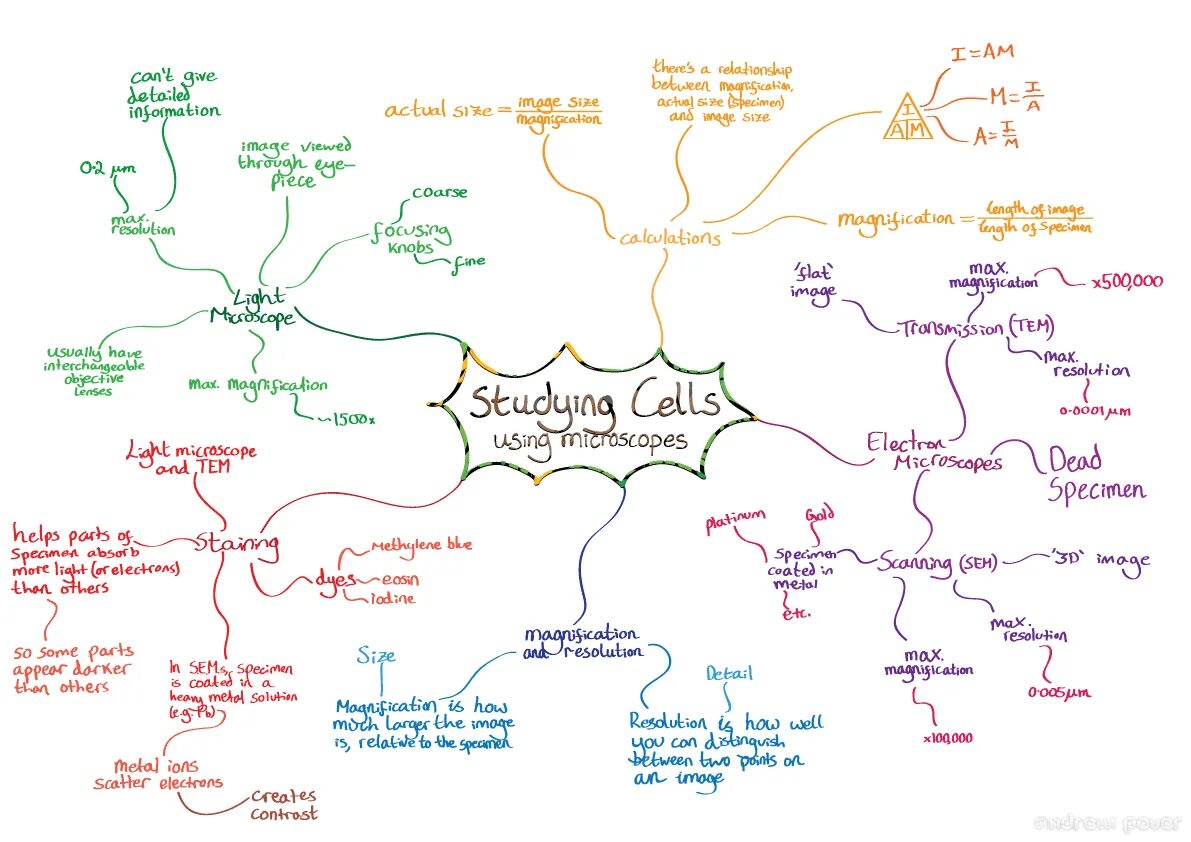 Studying Cells
using microscopes
Light
Microscope
max.
resolution
0.2 μm
can't give
detailed
information
image viewed
through eye-
piece
focusing
knobs
coarse
fine
usually have
interchangeable
objective
lenses
max. magnification
~1500x
calculations
actual size = image size
magnification
there's a relationship
between magnification,
actual size (specimen)
and image size
I
A M
I = AM
M = I
A
A = I
M
magnification = length of image
length of specimen
Electron
Microscopes
Dead
Specimen
Transmission (TEM)
'flat'
image
max.
magnification
x500,000
max.
resolution
0.0001 μm
Scanning (SEM)
'3D' image
max.
resolution
0.005 μm
max.
magnification
x100,000
Specimen
coated in
metal
platinum
Gold
etc.
magnification
and resolution
Size
Magnification is how
much larger the image
is, relative to the specimen
Detail
Resolution is how well
you can distinguish
between two points on
an image
Staining
Light microscope
and TEM
helps parts of
specimen absorb
more light (or electrons)
than others
so some parts
appear darker
than others
dyes
Methylene blue
eosin
iodine
In SEMs, specimen
is coated in a
heavy metal solution
(e.g. Pb)
metal ions
scatter electrons
creates
contrast
andrew povar